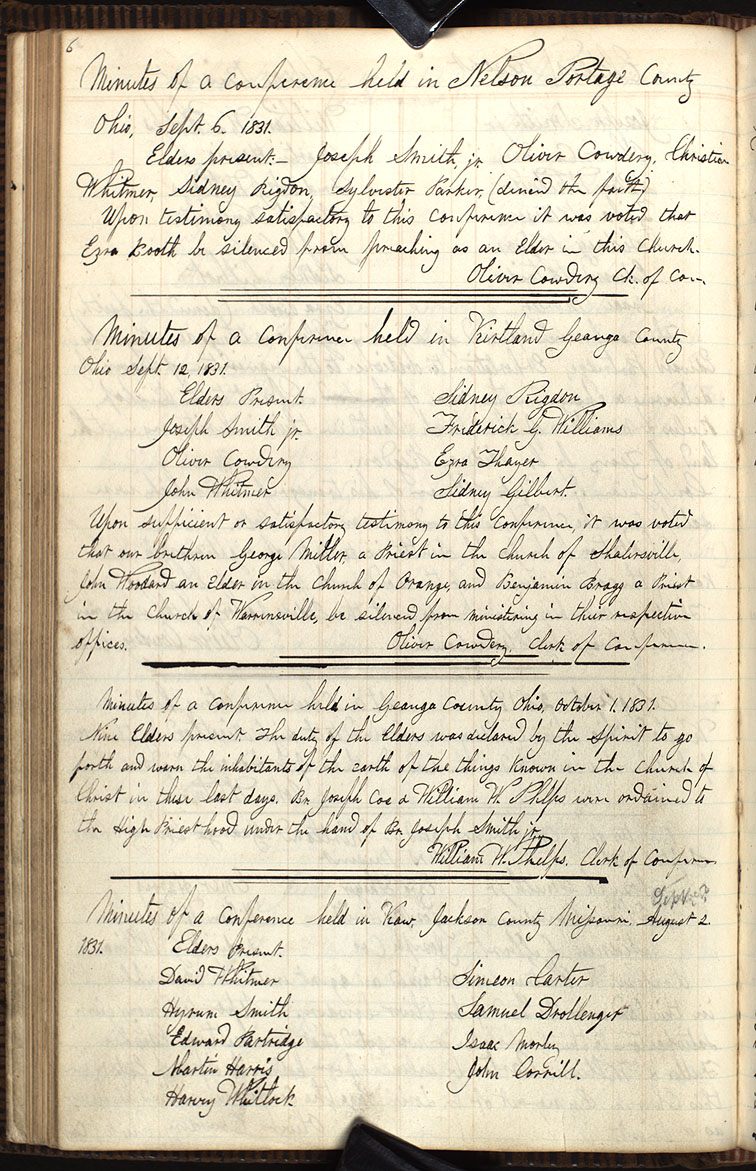 6
Minutes of a conference held in Nelson Portage County
Ohio, Sept. 6. 1831.
Elders present:— Joseph Smith jr. Oliver Cowdery, Christian
Whitmer, Sidney Rigdon, Sylvester Parker, (denied the faith)
Upon testimony satisfactory to this conference it was voted that
Ezra Booth be silenced from preaching as an Elder in this Church.
Oliver Cowdery Ck. of Con.
Minutes of a Conference held in Kirtland Geauga County
Ohio Sept. 12 1831.
Elders Present.
Sidney Rigdon
Joseph Smith jr.
Frederick G. Williams
Oliver Cowdery
Ezra Thayer
John Whitmer
Sidney Gilbert.
Upon sufficient or satisfactory testimony to this Conference, it was voted
that our brethren George Miller, a Priest in the Church of Shalersville,
John Woodard an Elder in the Church of Orange, and Benjamin Bragg a Priest
in the Church of Warrensville, be silenced from ministering in their respective
offices.
Oliver Cowdery, Clerk of Conference.
Minutes of a Conference held in Geauga County Ohio, October 1. 1831.
Nine Elders present. The duty of the Elders was declared by the Spirit to go
forth and warn the inhabitants of the Earth of the things known in the Church of
Christ in these last days. Br. Joseph Coe & William W. Phelps were ordained to
the High Priesthood under the hand of Br. Joseph Smith jr.
William W. Phelps. Clerk of Conference
Sept. 2?
Minutes of a Conference held in Kaw, Jackson County Missouri. August 2
1831.
Elders Present.
David Whitmer
Simeon Carter
Hyrum Smith
Samuel Drollenger
Edward Partridge
Isaac Morley
Martin Harris
John Corrill.
Harvey Whitlock